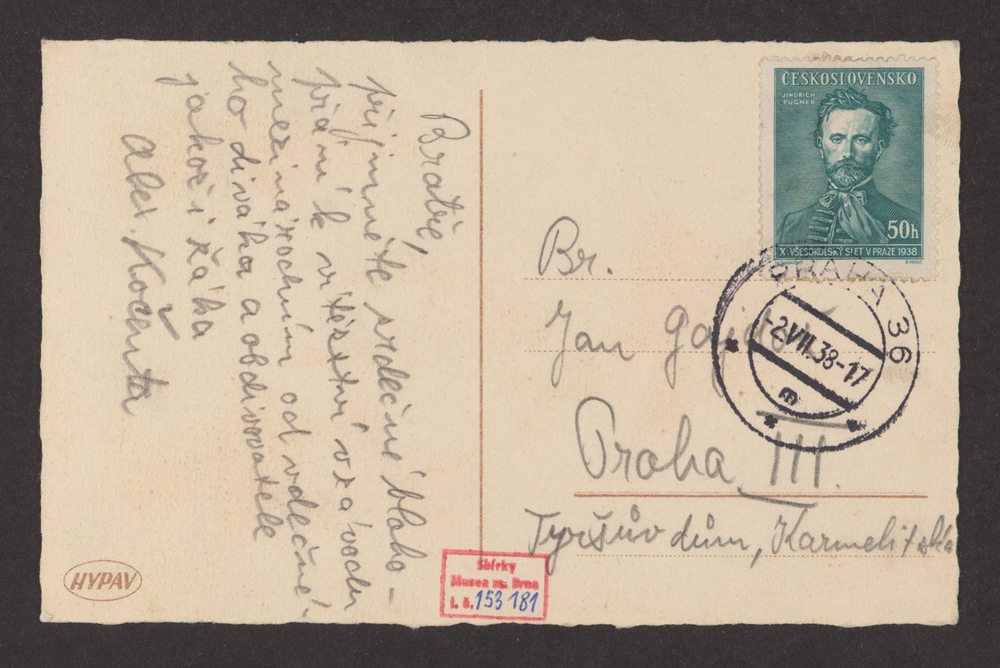 Bratře,
přijmněte srdečné blaho-
přání k vítězství v závodu
mezinárodním od vděčné-
ho diváka a obdivovatele
jakož i žáka
Kočenta
ČESKOSLOVENSKO
JINDŘICH
FÜGNER
50h
X. VŠESOKOLSKÝ SLET V PRAZE 1938
PRAHA 36
-2.VII.38-17
m
Br.
Jan Gajdoš
Praha III.
Tyršův dům, Karmelitská
HYPAV
Sbírky
Musea m. Brna
i. č. 153 181